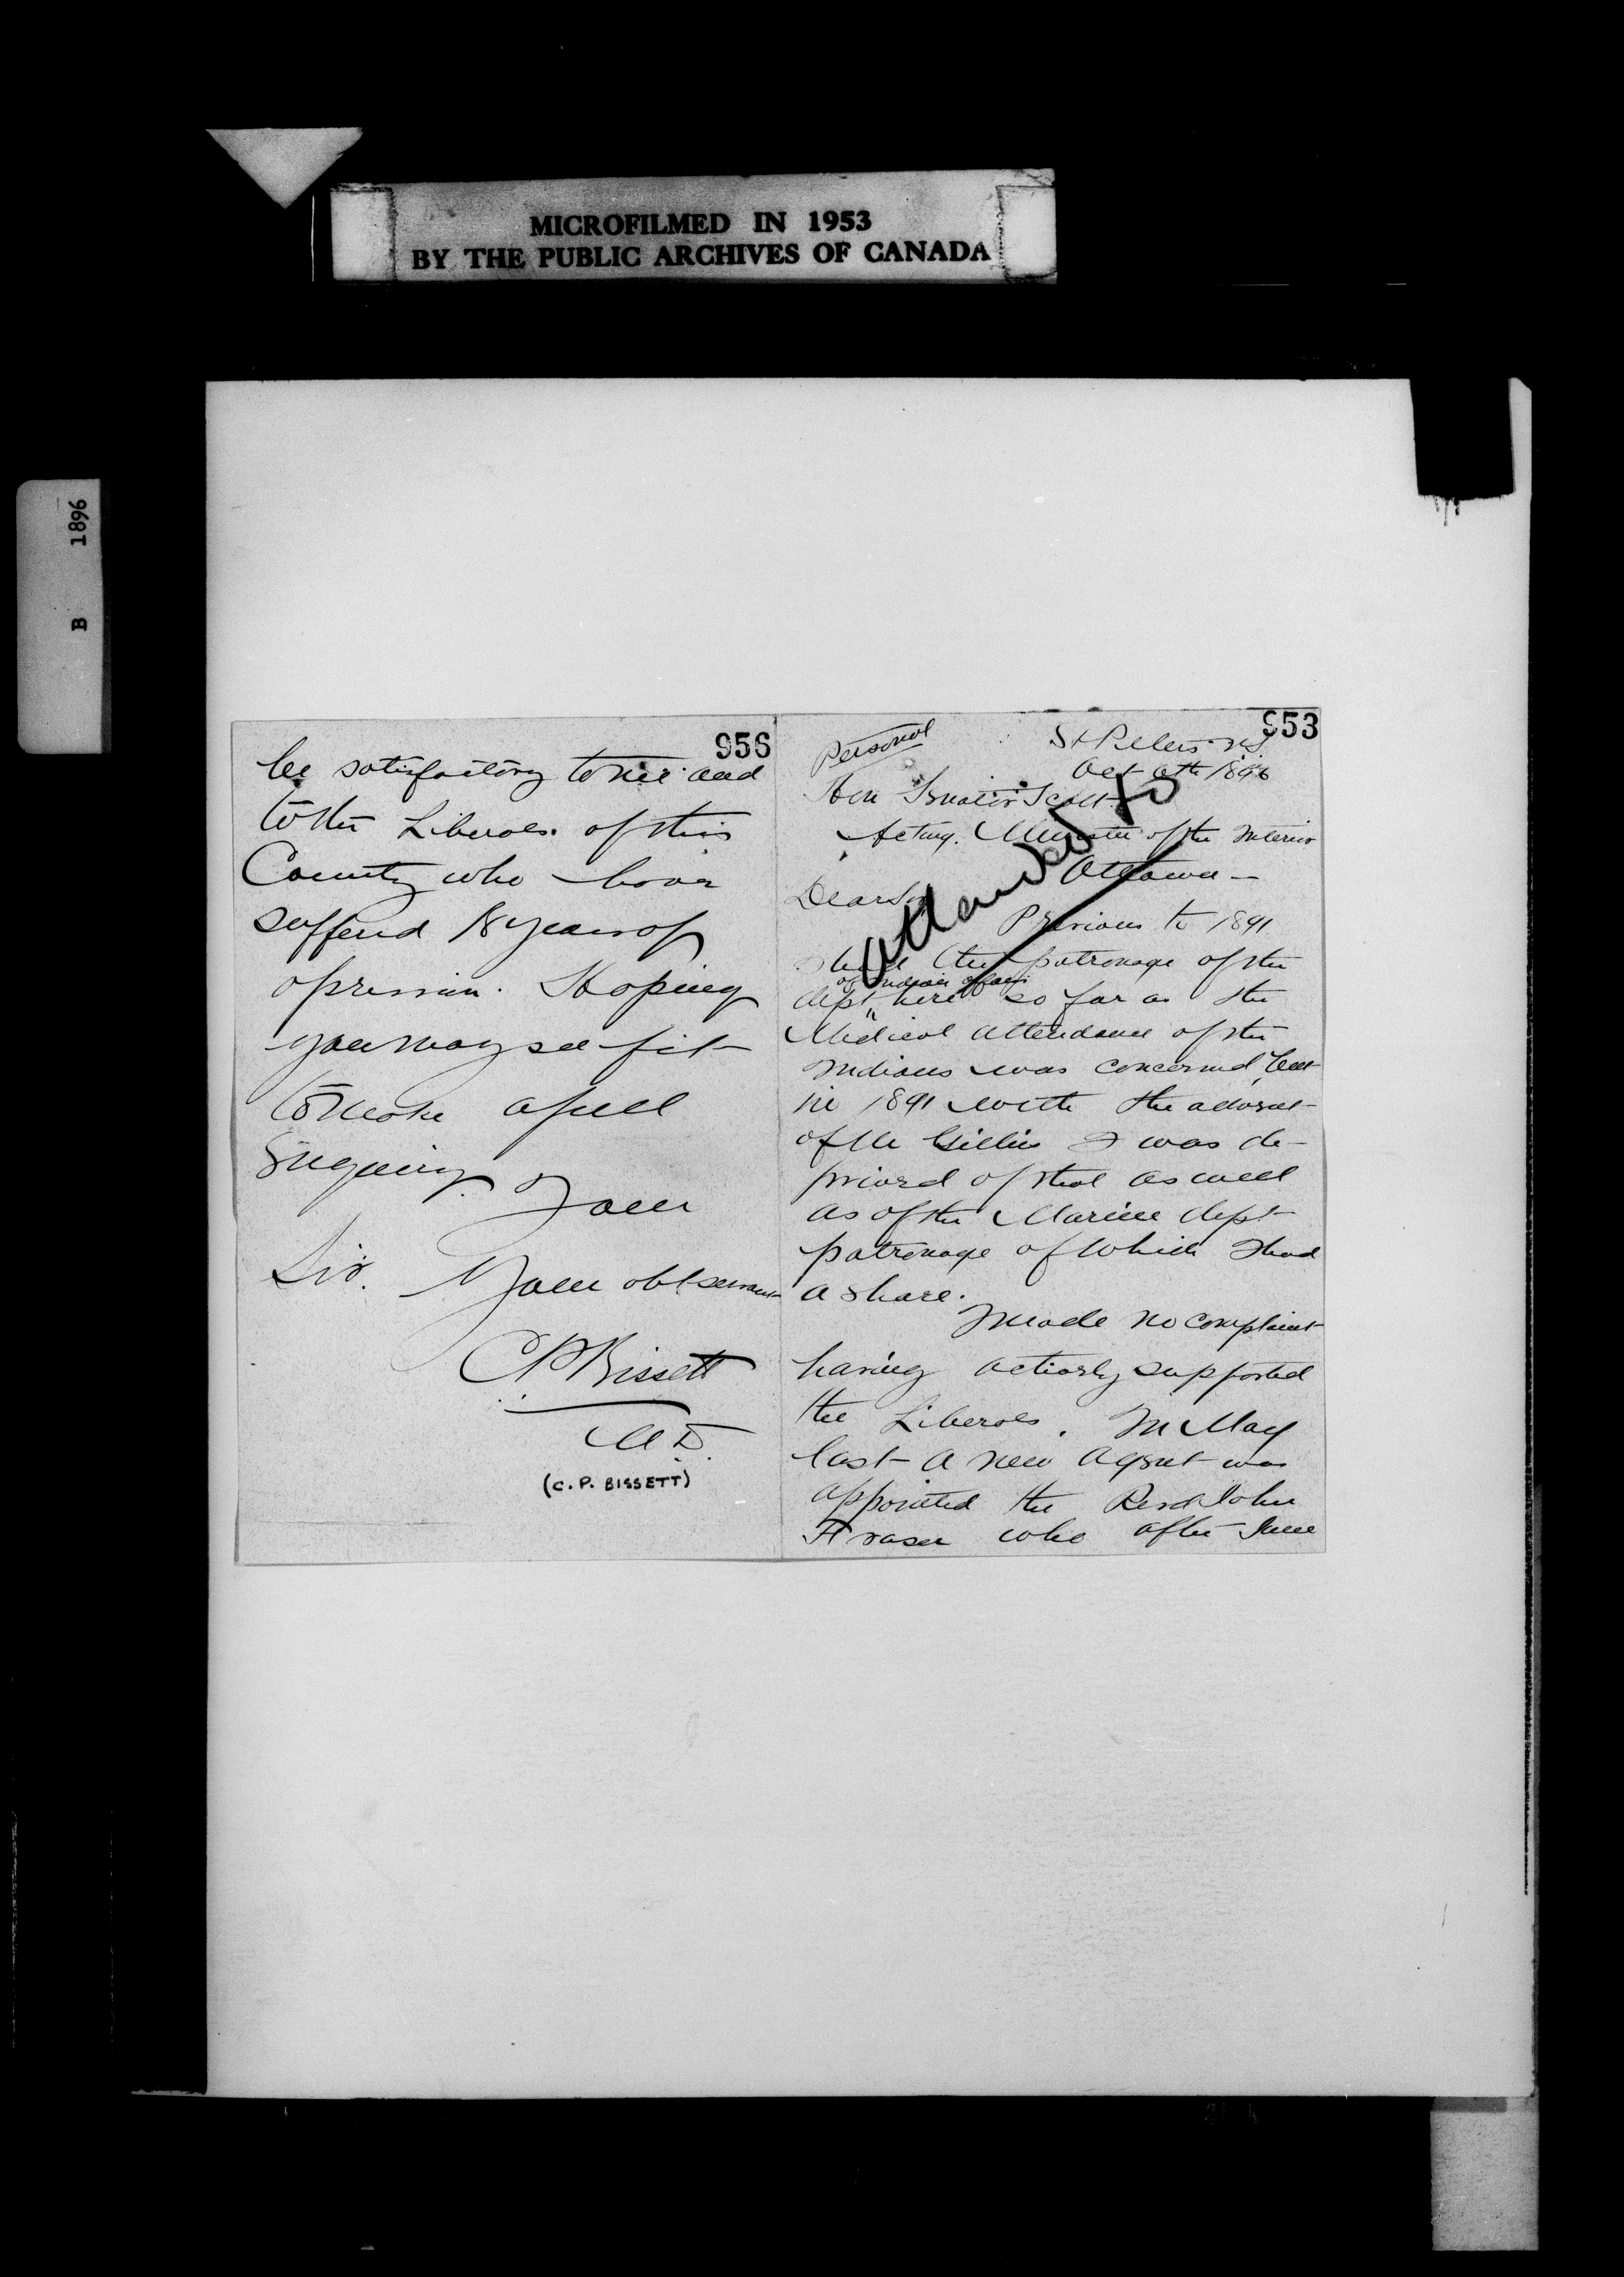 MICROFILMED IN 1953
BY THE PUBLIC ARCHIVES OF CANADA
B 1896
956
be satisfactory to me and
to the Liberals of this
County who have
sufferd 18 years of
opression. Hoping
you may see fit
to make a full
Enquiry. I am
Sir. Your obt servant
C P Bissett
M D.
(C. P. BISSETT)
953
Personal
St Peters N S
Oct 6th 1896
Hon Senator Scott
Acting Minister of the Interior
Ottawa —
Dear Sir
attended to
Previous to 1891
I had the patronage of the
of Indian affairs
dept here so far as the
Medical attendance of the
Indians was concerned, but
in 1891 with the advent
of Mr Gillies I was de-
prived of that as well
as of the Marine dept
patronage of which I had
a share.
I made no complaint
having actively supported
the Liberals. In May
last a new agent was
appointed the Revd John
Fraser who after June